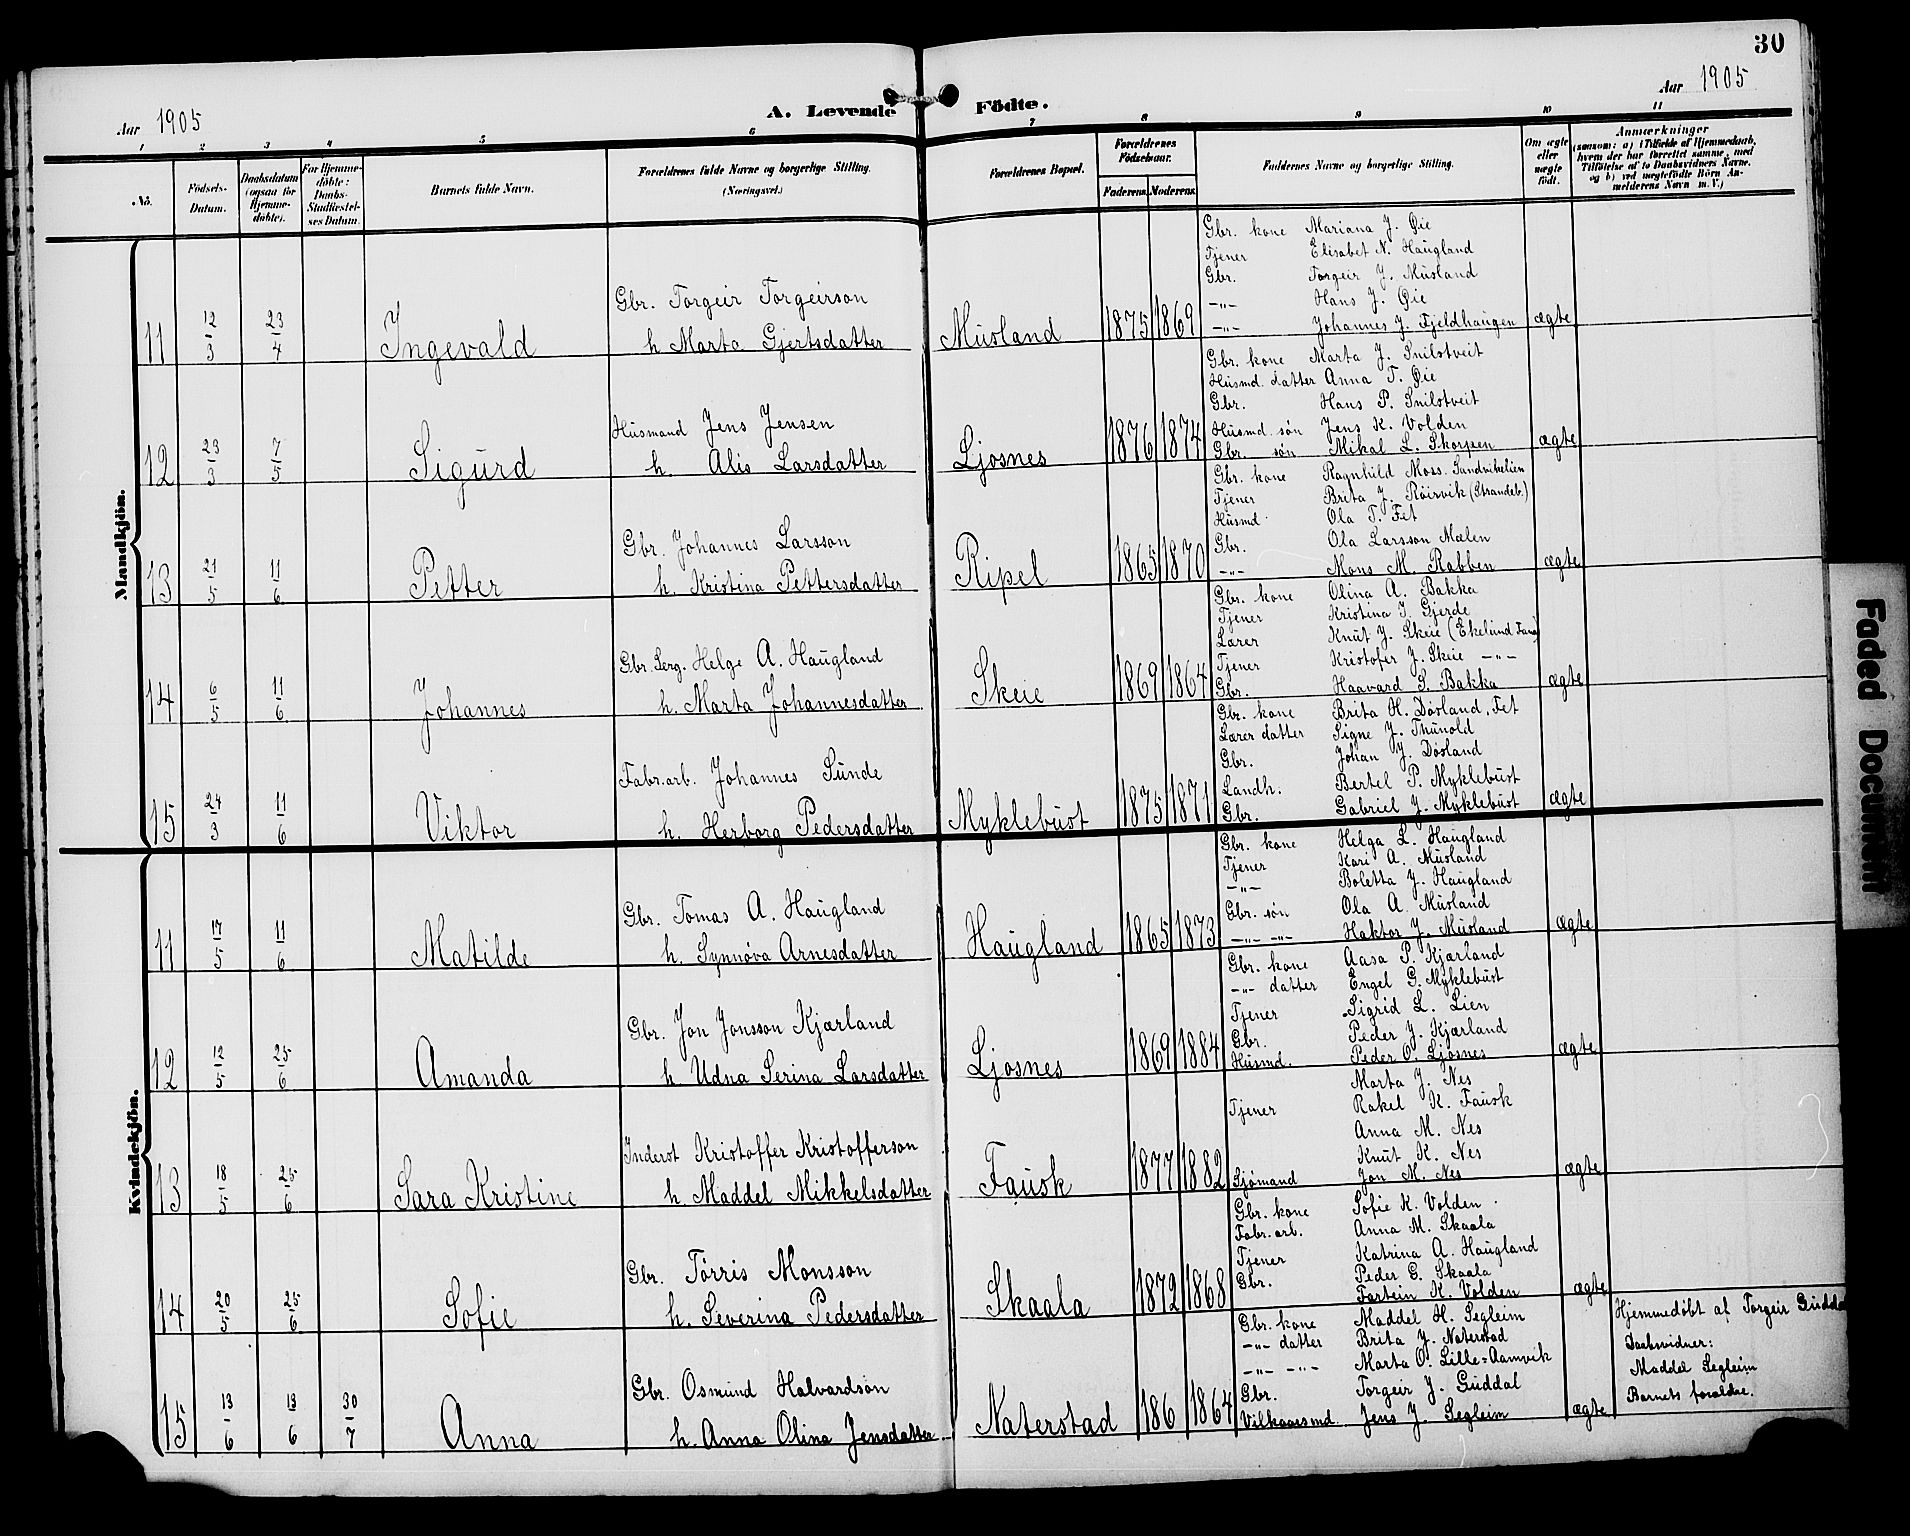 30
Aar 1905
A. Levende Födte.
Aar 1905
1 2 3 4 5 6 7 8 9 10 11
No. Födsels-Datum. Daabsdatum (ogsaa for Hjemme-döbte). For Hjemme-döbte: Daabs-Stadfæstel-ses Datum. Barnets fulde Navn. Forældrenes fulde Navne og borgerlige Stilling. (Næringsvei.) Forældrenes Bopæl. Forældrenes Födselsaar. Faderens. Moderens. Faddernes Navne og borgerlige Stilling. Om ægte eller uægte födt. Anmærkninger (saasom: a) i Tilfælde af Hjemmedaab, hvem der har forrettet samme, med Tilföielse af to Daabsvidners Navne. og b) ved uægtefödte Börn An-melderens Navn m. V.)
Mandkjön.
Gbr. kone Mariana J. Øie
Tjener Elisabet N. Haugland
Gbr. Torgeir J. Musland
Gbr. Torgeir Torgeirson
-"- Hans J. Øie
11 12/3 23/4 Ingevald h Marta Gjertsdatter Musland 1875 1869 -"- Johannes J. Fjeldhaugen ægte
Gbr. kone Marta J. Snilstveit
Husmd. datter Anna T. Øie
Gbr. Hans P. Snilstveit
Husmand Jens Jensen
Husmd. søn Jens K. Volden
12 23/3 7/5 Sigurd h. Alis Larsdatter Ljosnes 1876 1874 Gbr. søn Mikal L. Skorpen ægte
Gbr. kone Ragnhild Moss. Sandvikelien
Tjener Brita J. Röirvik (Strandeb.)
Husmd. Ola T. Fet
Gbr. Johannes Larsson
Gbr. Ola Larsson Mælen
13 21/5 11/6 Petter h. Kristina Pettersdatter Ripel 1865 1870 -"- Mons M. Rabben ægte
Gbr. kone Olina A. Bakka
Tjener Kristina J. Gjerde
Lærer Knut J. Skeie (Ekelund Fana)
Gbr. Serg. Helge A. Haugland
Tjener Kristofer J. Skeie -"-
14 6/5 11/6 Johannes h. Marta Johannesdatter Skeie 1869 1864 Gbr. Haavard S. Bakka ægte
Gbr. kone Brita H. Døsland, Fet
Lærer datter Signe J. Thunold
Gbr. Johan J. Døsland
Fabr.arb. Johannes Sunde
Landh. Bertel P. Myklebust
15 24/3 11/6 Viktor h. Herborg Pedersdatter Myklebust 1875 1871 Gbr. Gabriel J. Myklebust ægte
Kvindekjön.
Gbr. kone Helga L. Haugland
Tjener Kari A. Musland
-"- Boletta J. Haugland
Gbr. Tomas A. Haugland
Gbr. søn Ola A. Musland
11 17/5 11/6 Matilde h. Synnøva Arnesdatter Haugland 1865 1873 -"- -"- Haktor J. Musland ægte
Gbr. kone Aasa P. Kjærland
-"- datter Engel G. Myklebust
Tjener Sigrid L. Lien
Gbr. Jon Jonsson Kjærland
Gbr. Peder J. Kjærland
12 12/5 25/6 Amanda h Udna Serina Larsdatter Ljosnes 1869 1884 Husmd. Peder O. Ljosnes ægte
Marta J. Nes
Tjener Rakel K. Fausk
Anna M. Nes
Inderst Kristoffer Kristofferson
Knut K. Nes
13 18/5 25/6 Sara Kristine h. Maddel Mikkelsdatter Fausk 1877 1882 Sjømand Jon M. Nes ægte
Gbr. kone Sofie K. Volden
Fabr. arb. Anna M. Skaala
Tjener Katrina A. Haugland
Gbr. Tørris Monsson
Gbr. Peder G. Skaala
14 20/5 25/6 Sofie h. Severina Pedersdatter Skaala 1872 1868 Fartein K. Volden ægte
Gbr. kone Maddel H. Segleim
-"- datter Brita J. Naterstad
-"- -"- Marta O. Lille=Aamvik
Gbr. Osmund Halvardson
Gbr. Torgeir J. Guddal
15 13/6 13/6 30/7 Anna h. Anna Olina Jensdatter Naterstad 186 1864 Vilkaarsmd. Jens J. Segleim ægte
Hjemmedøbt af Torgeir Guddal
Daabsvidner:
Maddel Segleim
Barnets forældre.
Faded Document